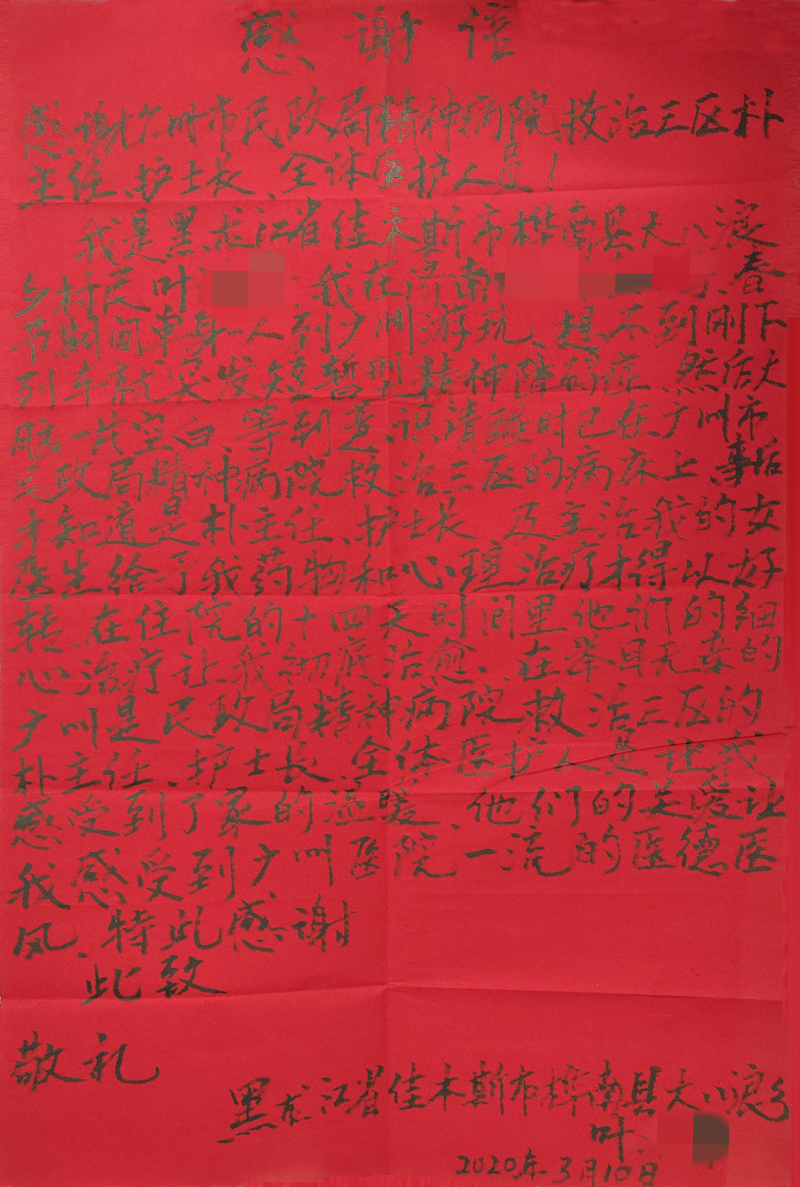 感谢信
感谢广州市民政局精神病院救治三区朴
主任、护士长、全体医护人员！
我是黑龙江省佳木斯市桦南县大八浪
乡村民叶 我在济南 春
节期间单身一人到广州游玩、想不到刚下
列车就突发短暂型精神障碍症、然后大
脑一片空白、等到意识清醒时已在广州市
民政局精神病院救治三区的病床上、事后
才知道是朴主任、护士长及主治我的女
医生给予我药物和心理治疗才得以好
转、在住院的十四天时间里他们的细
心治疗让我彻底治愈、在举目无亲的
广州是民政局精神病院救治三区的
朴主任、护士长、全体医护人员让我
感受到了家的温暖、他们的关爱让
我感受到广州医院一流的医德医
风、特此感谢
此致
敬礼
黑龙江省佳木斯市桦南县大八浪乡
叶
2020年3月10日